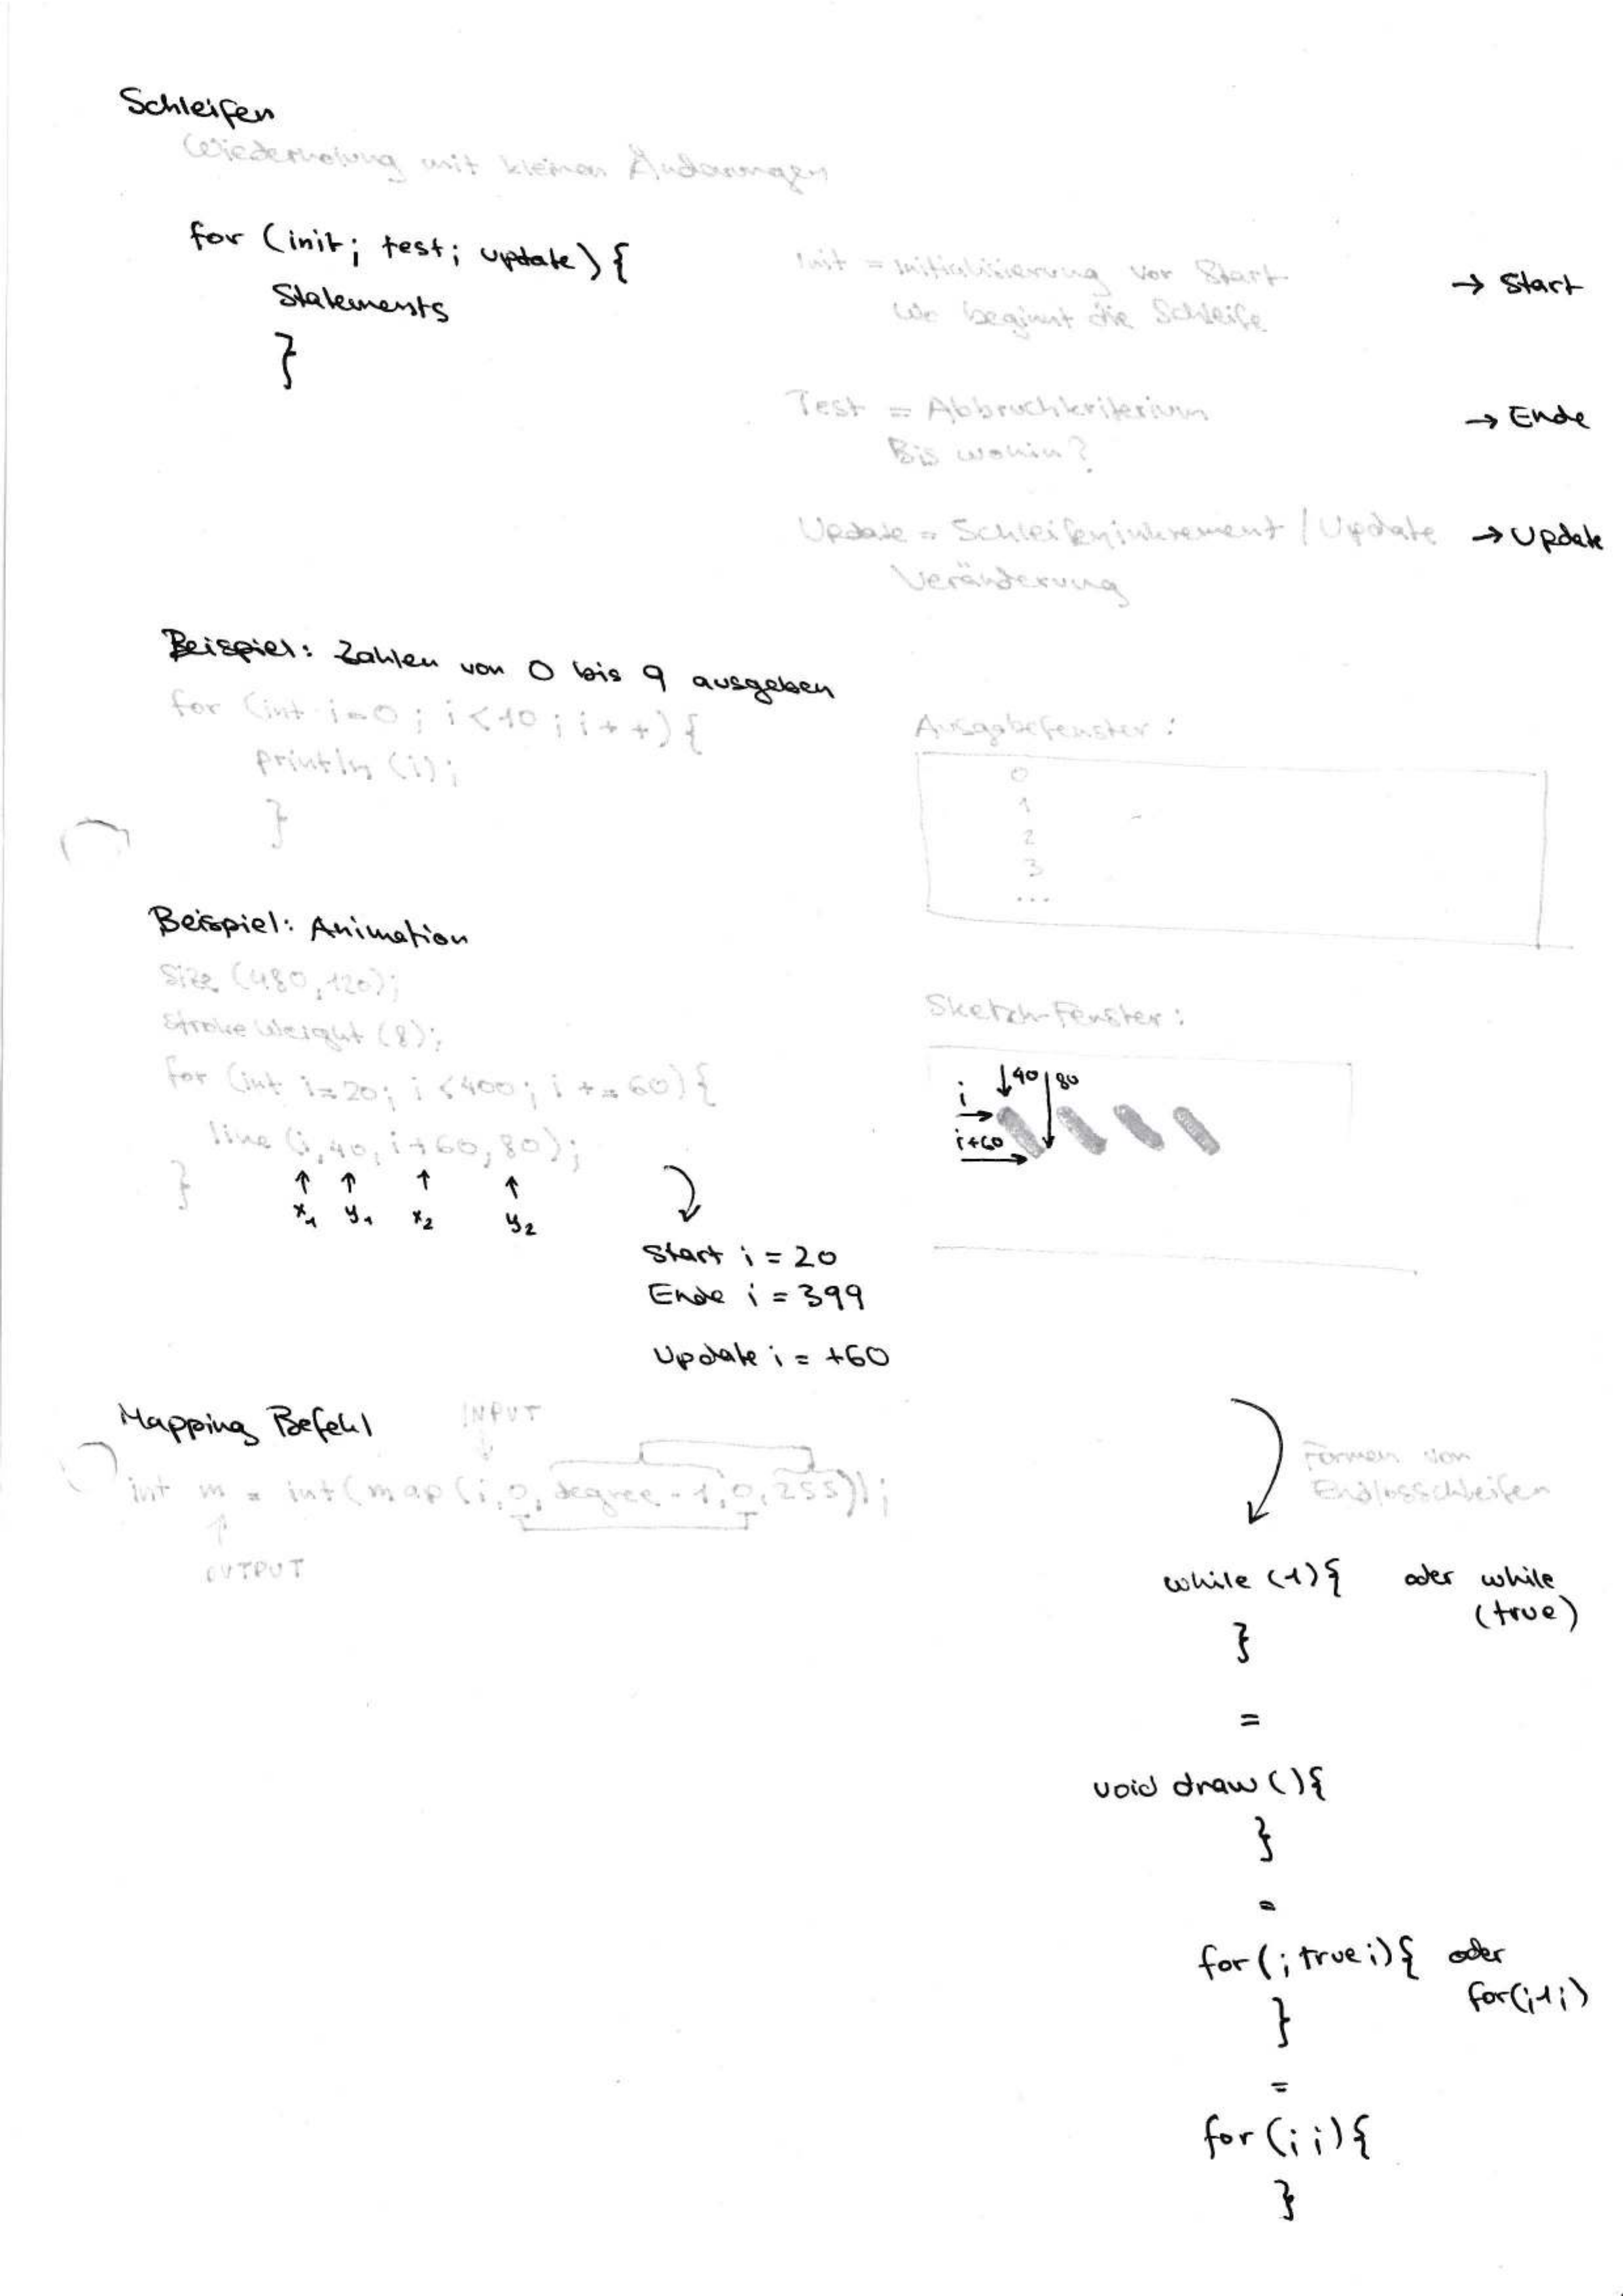 Schleifen
Wiederholung mit kleinen Änderungen
for (init; test; update) {
Statements
}
Init = Initialisierung vor Start
Wo beginnt die Schleife
→ Start
Test = Abbruchkriterium
Bis wohin?
→ Ende
Update = Schleifeninkrement / Update
Veränderung
→ Update
Beispiel: Zahlen von 0 bis 9 ausgeben
for (int i=0; i<10; i++) {
println (i);
}
Ausgabefenster:
0
1
2
3
...
Beispiel: Animation
Size (480, 120);
Stroke Weight (8);
for (int i=20; i<400; i += 60) {
line (i, 40, i+60, 80);
}
↑ ↑ ↑ ↑
x1 y1 x2 y2
Start i = 20
Ende i = 399
Update i = +60
Sketch-Fenster:
i ↓40 80
i+60
Mapping Befehl
INPUT
int m = int(map(i, 0, degree - 1, 0, 255));
OUTPUT
Formen von
Endlosschleifen
while (1) { oder while
(true)
}
=
void draw () {
}
=
for (; true;) { oder
for (;1;)
}
=
for (;;) {
}